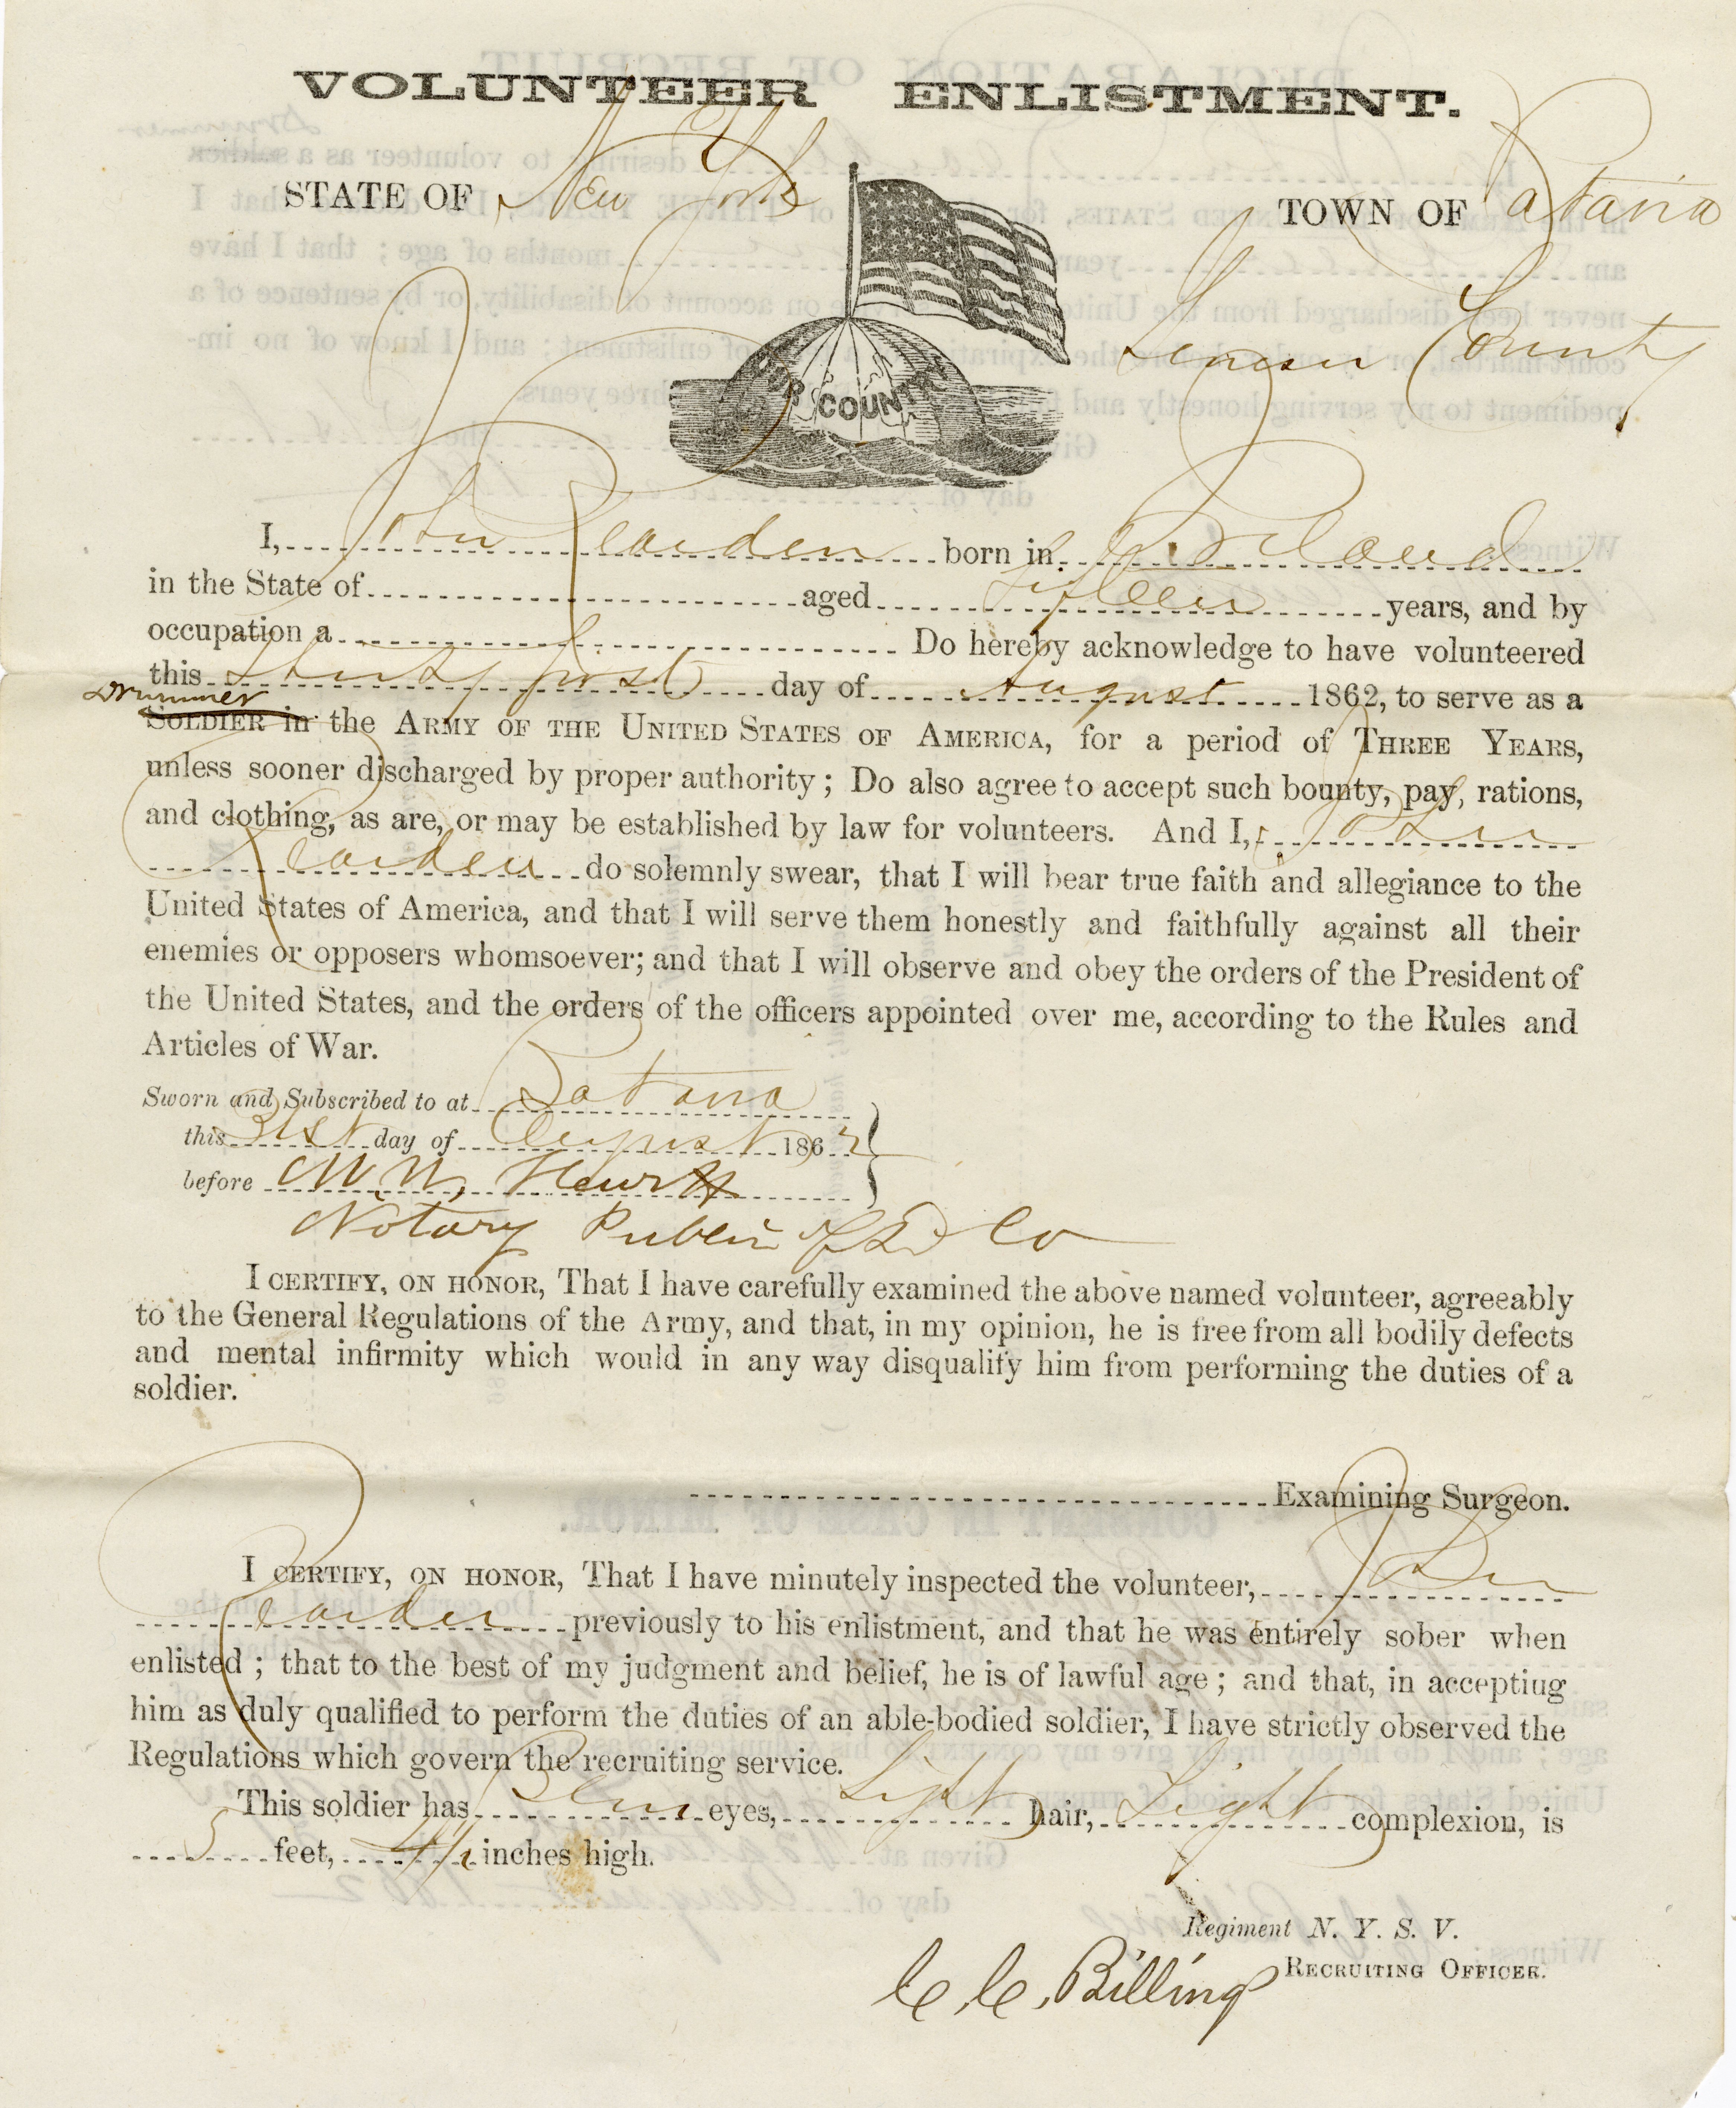 VOLUNTEER ENLISTMENT.
STATE OF New York TOWN OF Batavia
Genesee County
OUR COUNTRY
I, John Rearden born in Ireland
in the State of aged fifteen years, and by
occupation a Do hereby acknowledge to have volunteered
this thirty first day of August 1862, to serve as a
Drummer
SOLDIER in the ARMY OF THE UNITED STATES OF AMERICA, for a period of THREE YEARS,
unless sooner discharged by proper authority; Do also agree to accept such bounty, pay, rations,
and clothing, as are, or may be established by law for volunteers. And I, John
Rearden do solemnly swear, that I will bear true faith and allegiance to the
United States of America, and that I will serve them honestly and faithfully against all their
enemies or opposers whomsoever; and that I will observe and obey the orders of the President of
the United States, and the orders of the officers appointed over me, according to the Rules and
Articles of War.
Sworn and Subscribed to at Batavia
this 31st day of August 1862
before M. W. Hewitt
Notary Public Co
I CERTIFY, ON HONOR, That I have carefully examined the above named volunteer, agreeably
to the General Regulations of the Army, and that, in my opinion, he is free from all bodily defects
and mental infirmity which would in any way disqualify him from performing the duties of a
soldier.
Examining Surgeon.
I CERTIFY, ON HONOR, That I have minutely inspected the volunteer, John
Rearden previously to his enlistment, and that he was entirely sober when
enlisted; that to the best of my judgment and belief, he is of lawful age; and that, in accepting
him as duly qualified to perform the duties of an able-bodied soldier, I have strictly observed the
Regulations which govern the recruiting service.
This soldier has Blue eyes, Light hair, Light complexion, is
5 feet, 4½ inches high.
Regiment N. Y. S. V.
C. C. Billings RECRUITING OFFICER.